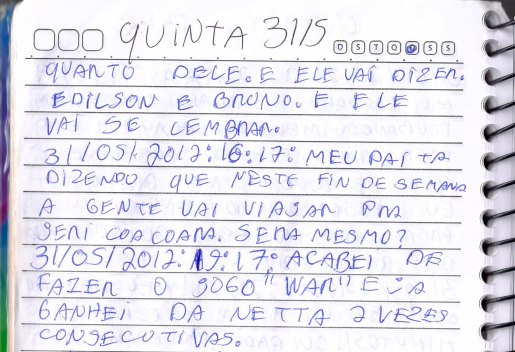 QUINTA 31/5 D S T Q Q S S
QUANTO DELE. E ELE VAI DIZER.
EDILSON E BRUNO. E ELE
VAI SE LEMBRAR.
31/05/2012: 16:17: MEU PAI TA
DIZENDO QUE NESTE FIN DE SEMANA
A GENTE VAI VIAJAR PRA
JERI COACOARA. SERA MESMO?
31/05/2012: 19:17: ACABEI DE
FAZER O JOGO "WAR" E JA
GANHEI DA NETTA 2 VEZES
CONSECUTIVAS.